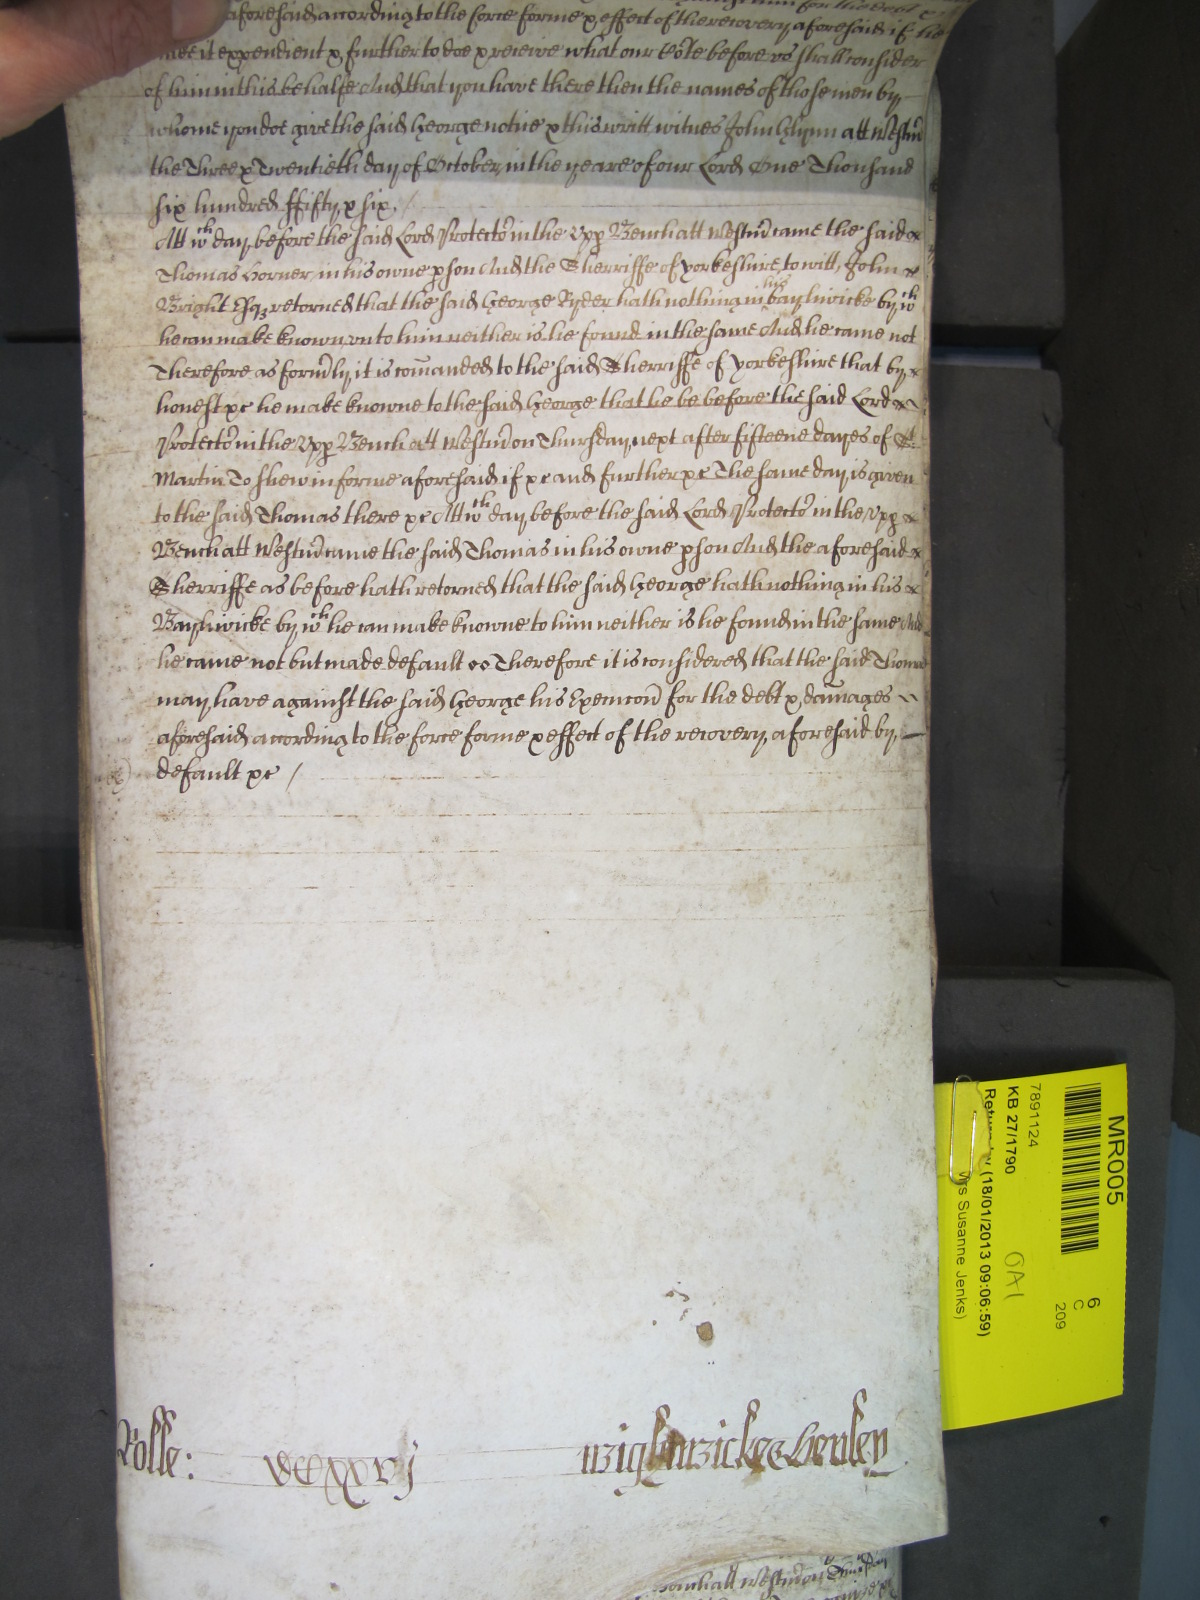 aforesaid according to the force forme & effect of the recovery aforesaid if he
it expendient & further to doe & receive what our Co[ur]te before vs shall consider
of him in this behalfe And that you have there then the names of those men by
whome you doe give the said George notice & this writt witnes John Glynn att Westm̃
the Three & Twentieth day of October in the yeare of our Lord One Thousand
six hundred ffifty & six /
Att wch day before the said Lord Protector in the Vpp Bench att Westm̃ came the said
Thomas Horner in his owne pson And the Sherriffe of yorkeshire to witt John
Bright Esqz retorned that the said George Ryder hath nothing in his bayliwicke by wch
he can make known vnto him neither is he found in the same And he came not
Therefore as form̃ly it is com̃anded to the said Sherriffe of yorkeshire that by
honest &c he make knowne to the said George that he be before the said Lord
Protector in the Vpp Bench att Westm̃ on Thursday next after fifteene dayes of St
Martin To shew in forme aforesaid if &c and further &c The same day is given
to the said Thomas there &c Att wch day before the said Lord Protector in the Vpp
Bench att Westm̃ came the said Thomas in his owne pson And the aforesaid
Sherriffe as before hath retorned that the said George hath nothing in his
Bayliwicke by wch he can make knowne to him neither is he found in the same And
he came not but made default Therefore it is considered that the said Thomas
may have against the said George his Execucon̄ for the debt & dam̃ages
aforesaid according to the force forme & effect of the recovery aforesaid by
default &c /
Rolle: vcxxvj wightwicke & Henley
MR005
7891124
KB 27/1790
(18/01/2013 09:06:59)
Mrs Susanne Jenks)
OA1
6
C
209